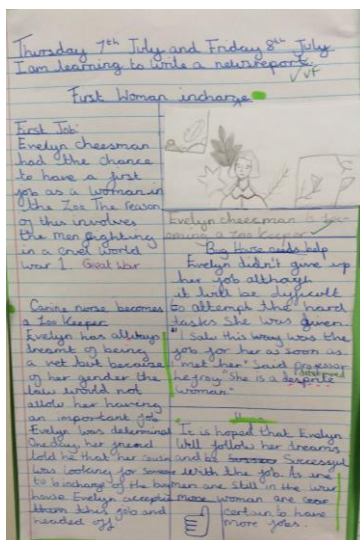 Thursday 7th July and Friday 8th July
I am learning to write a newsreport.
First Woman incharge
First Job:
Evelyn cheesman
had the chance
to have a first
job as a woman in
the Zoo The reason
of this involves
the men fighting
in a cruel world
war 1. Great War
Canine nurse becomes
a Zoo Keeper
Evelyn has always
dreamt of being
a vet but because
of her gender the
law would not
allow her having
an important job
Evelyn was determinat
One day her friend
told he that her cousin
was looking for someone
to be incharge of the bug
house Evelyn accepted
this job and
headed off
Evelyn cheesman is
a Zoo Keeper
Bug House needs help
Evelyn didn't give up
her job although
it until be dyficult
to attempt the hard
tasks She was given.
"I Saw this was the
job for her as soon as
I met her" Said professor
"She is a
woman"
Hope
It is hoped that Evelyn
Will follow her dreams
and be Sucsessful
With the job. As
men are still in the war
more woman are
certain to have
more jobs.